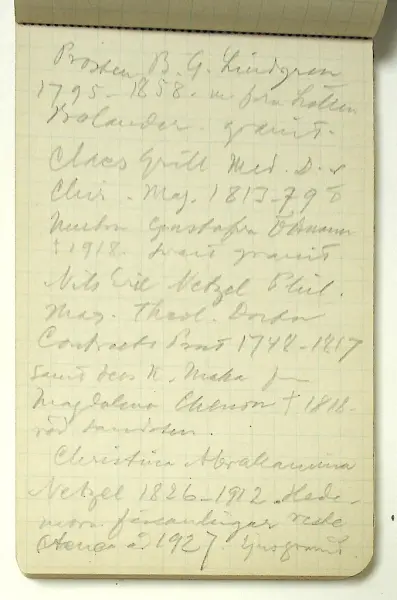 Prosten B. G. Lindgren
1795-1858. m fru Lotten
Bolander. granit.
Claes Grill Med. D. &
Chir. Mag. 1813-79 o
hustru Gustafva Öhmann
† 1918. svart granit.
Nils Eric Netzel Phil.
Mag. Theol. Doctor
Contracts Prost 1748-1817
samt dess K. Maka fru
Magdalena † 1818.
röd sandsten.
Christina Abrahamina
Netzel 1826-1912. Hede-
mora församlingar reste
stenen å 1927.